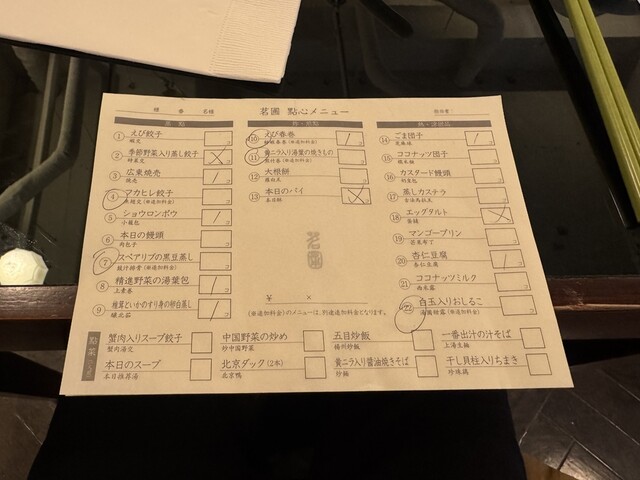 茗圃 點心メニュー
① えび餃子
② 季節野菜入り蒸し餃子
③ 広東焼売
焼売
④ アカハタ餃子
⑤ ショウロンポウ
小籠包
⑥ 本日の饅頭
肉包子
⑦ スペアリブの黒豆蒸し
(※追加料金)
⑧ 精進野菜の湯葉包
上素巻
⑨ 椎茸といかのすり身の卵白蒸し
⑩ えび春巻
(※追加料金)
⑪ 黄ニラ入り湯葉の焼きもの
(※追加料金)
⑫ 大根餅
⑬ 本日のパイ
⑭ ごま団子
⑮ ココナッツ団子
⑯ カスタード饅頭
⑰ 蒸しカステラ
⑱ エッグタルト
蛋撻
⑲ マンゴープリン
⑳ 杏仁豆腐
杏仁豆腐
㉑ ココナッツミルク
西米露
㉒ 白玉入りおしるこ
(※追加料金)
¥ ×
(※追加料金)のメニューは、別途追加料金となります。
蟹肉入りスープ餃子
蟹肉湯交
中国野菜の炒め
炒中国野菜
五目炒飯
揚州炒飯
一番出汁の汁そば
上湯生麺
本日のスープ
本日推荐湯
北京ダック(2本)
北京鴨
黄ニラ入り醤油焼きそば
炒麺
干し貝柱入りちまき
珍珠鶏